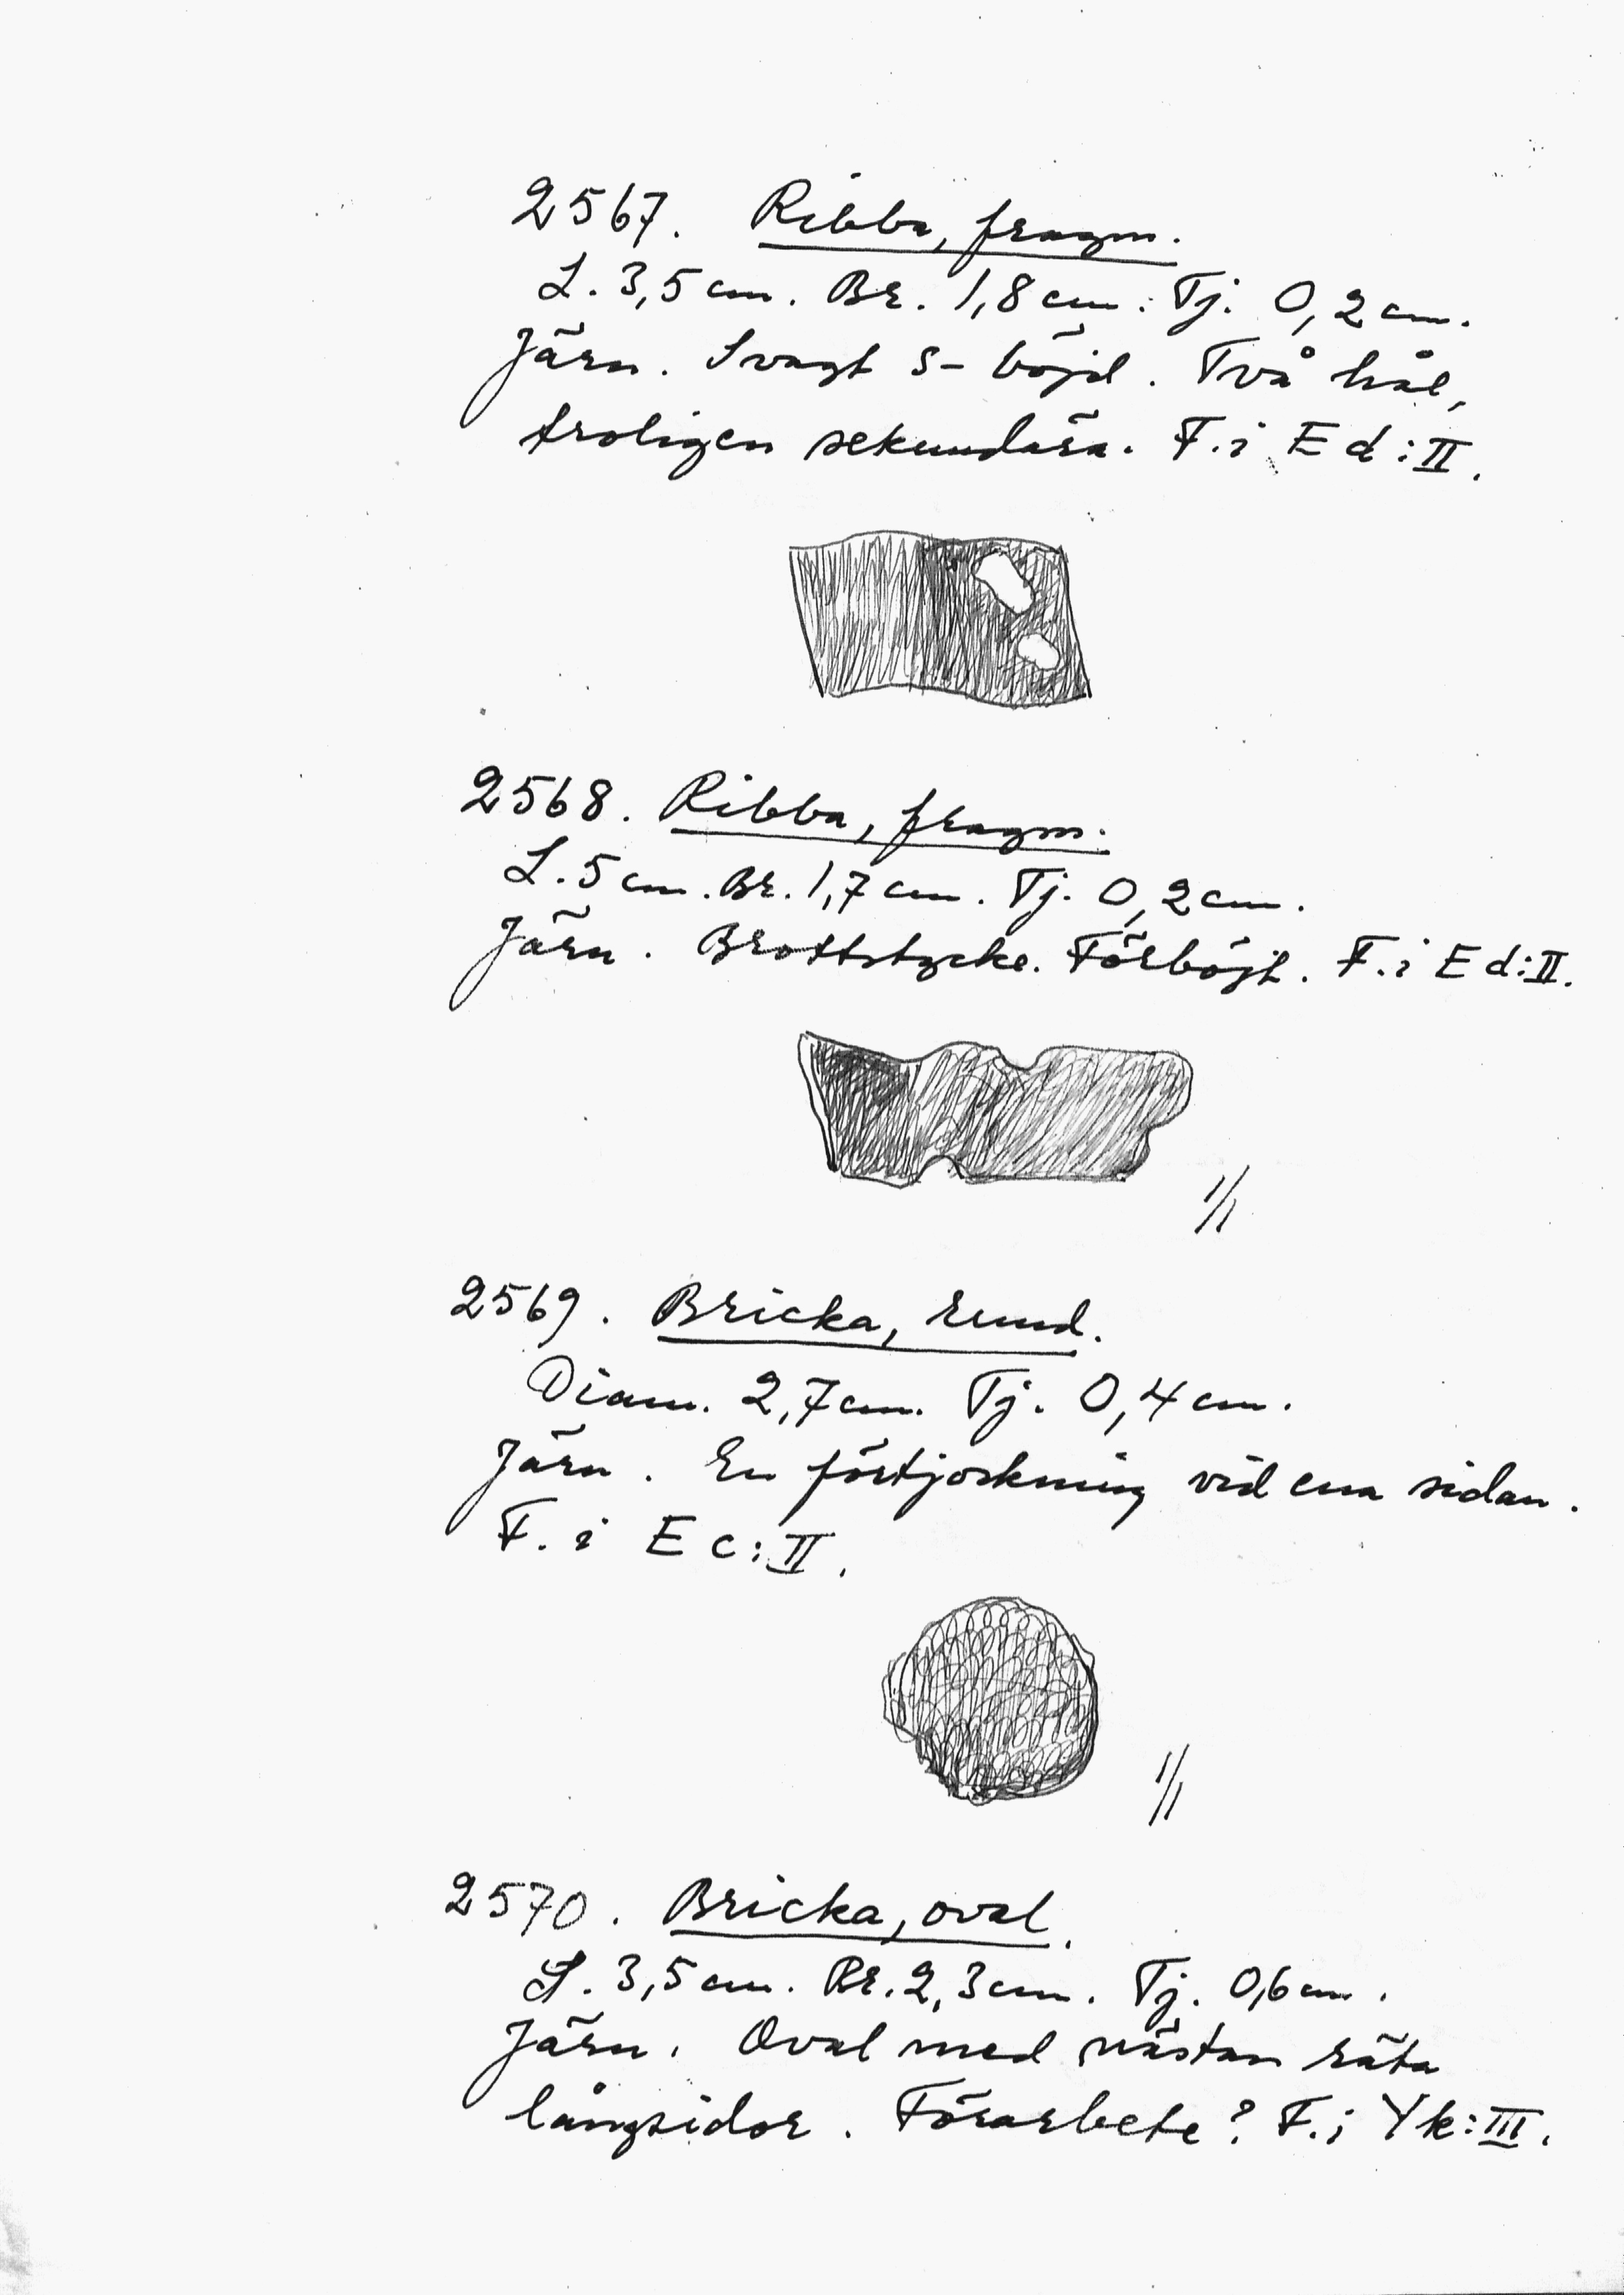 2567. Ribba, fragm.
L. 3,5 cm. Br. 1,8 cm. Tj. 0,2 cm.
Järn. Svagt S-böjd. Två hål,
troligen sekundära. F. i E d:II.
2568. Ribba, fragm.
L. 5 cm. Br. 1,7 cm. Tj. 0,2 cm.
Järn. Brottstycke. Förböjt. F. i E d:II.
1/1
2569. Bricka, rund.
Diam. 2,7 cm. Tj. 0,4 cm.
Järn. En förtjockning vid ena sidan.
F. i E c:II.
1/1
2570. Bricka, oval.
L. 3,5 cm. Br. 2,3 cm. Tj. 0,6 cm.
Järn. Oval med nästan räta
långsidor. Förarbete? F. i Y k:III.